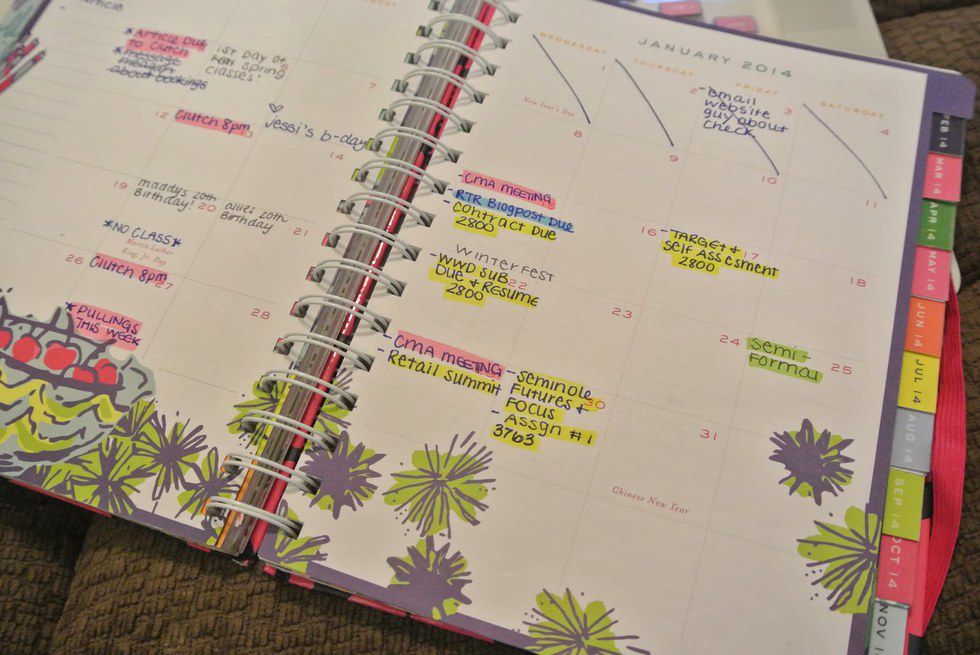 Article
*Article Due
to Clutch
*message
meghan
about bookings
1st Day of
spring
classes!
7
12
Clutch 8pm
13
♡
Jessi's b-day
14
19
maddys 20th
Birthday!
20
allies 20th
Birthday
21
*NO CLASS*
Martin Luther
King Jr. Day
26
Clutch 8pm
27
28
*PULLINGS
THIS WEEK
JANUARY 2014
WEDNESDAY
THURSDAY
FRIDAY
SATURDAY
1
2
3
4
New Year's Day
-email
website
guy about
check
8
9
10
11
-CMA MEETING
-RTR Blogpost Due
-Contract Due
2800
16
-TARGET +
Self Assesment
2800
17
18
WinterFest
-WWD SUB
Due + Resume
2800
22
23
24
Semi-
Formal
25
-CMA MEETING
-Retail Summit
-Seminole
Futures +
FOCUS
-Assgn #1
3763
30
31
Chinese New Year
FEB 14
MAR 14
APR 14
MAY 14
JUN 14
JUL 14
AUG 14
SEP 14
OCT 14
NOV 14